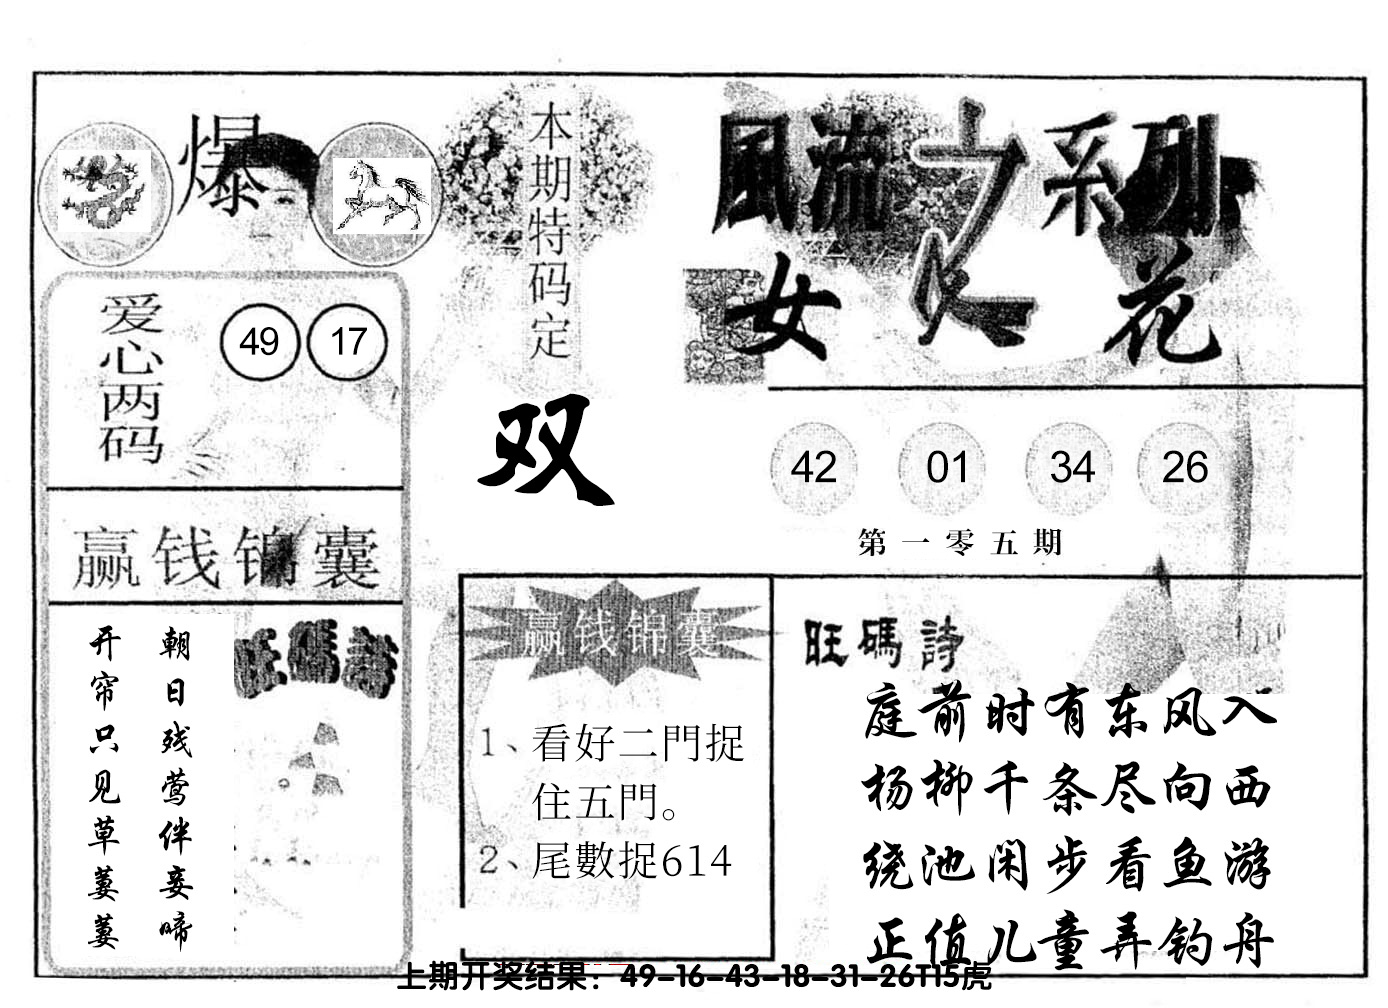 爆
本期特码定
双
風流之系列
女人花
爱心两码
49 17
42 01 34 26
第一零五期
赢钱锦囊
朝日残莺伴妾啼
开帘只见草萋萋
旺碼詩
赢钱锦囊
1、看好二門捉
住五門。
2、尾數捉614
旺碼詩
庭前时有东风入
杨柳千条尽向西
绕池闲步看鱼游
正值儿童弄钓舟
上期开奖结果：49-16-43-18-31-26T15虎